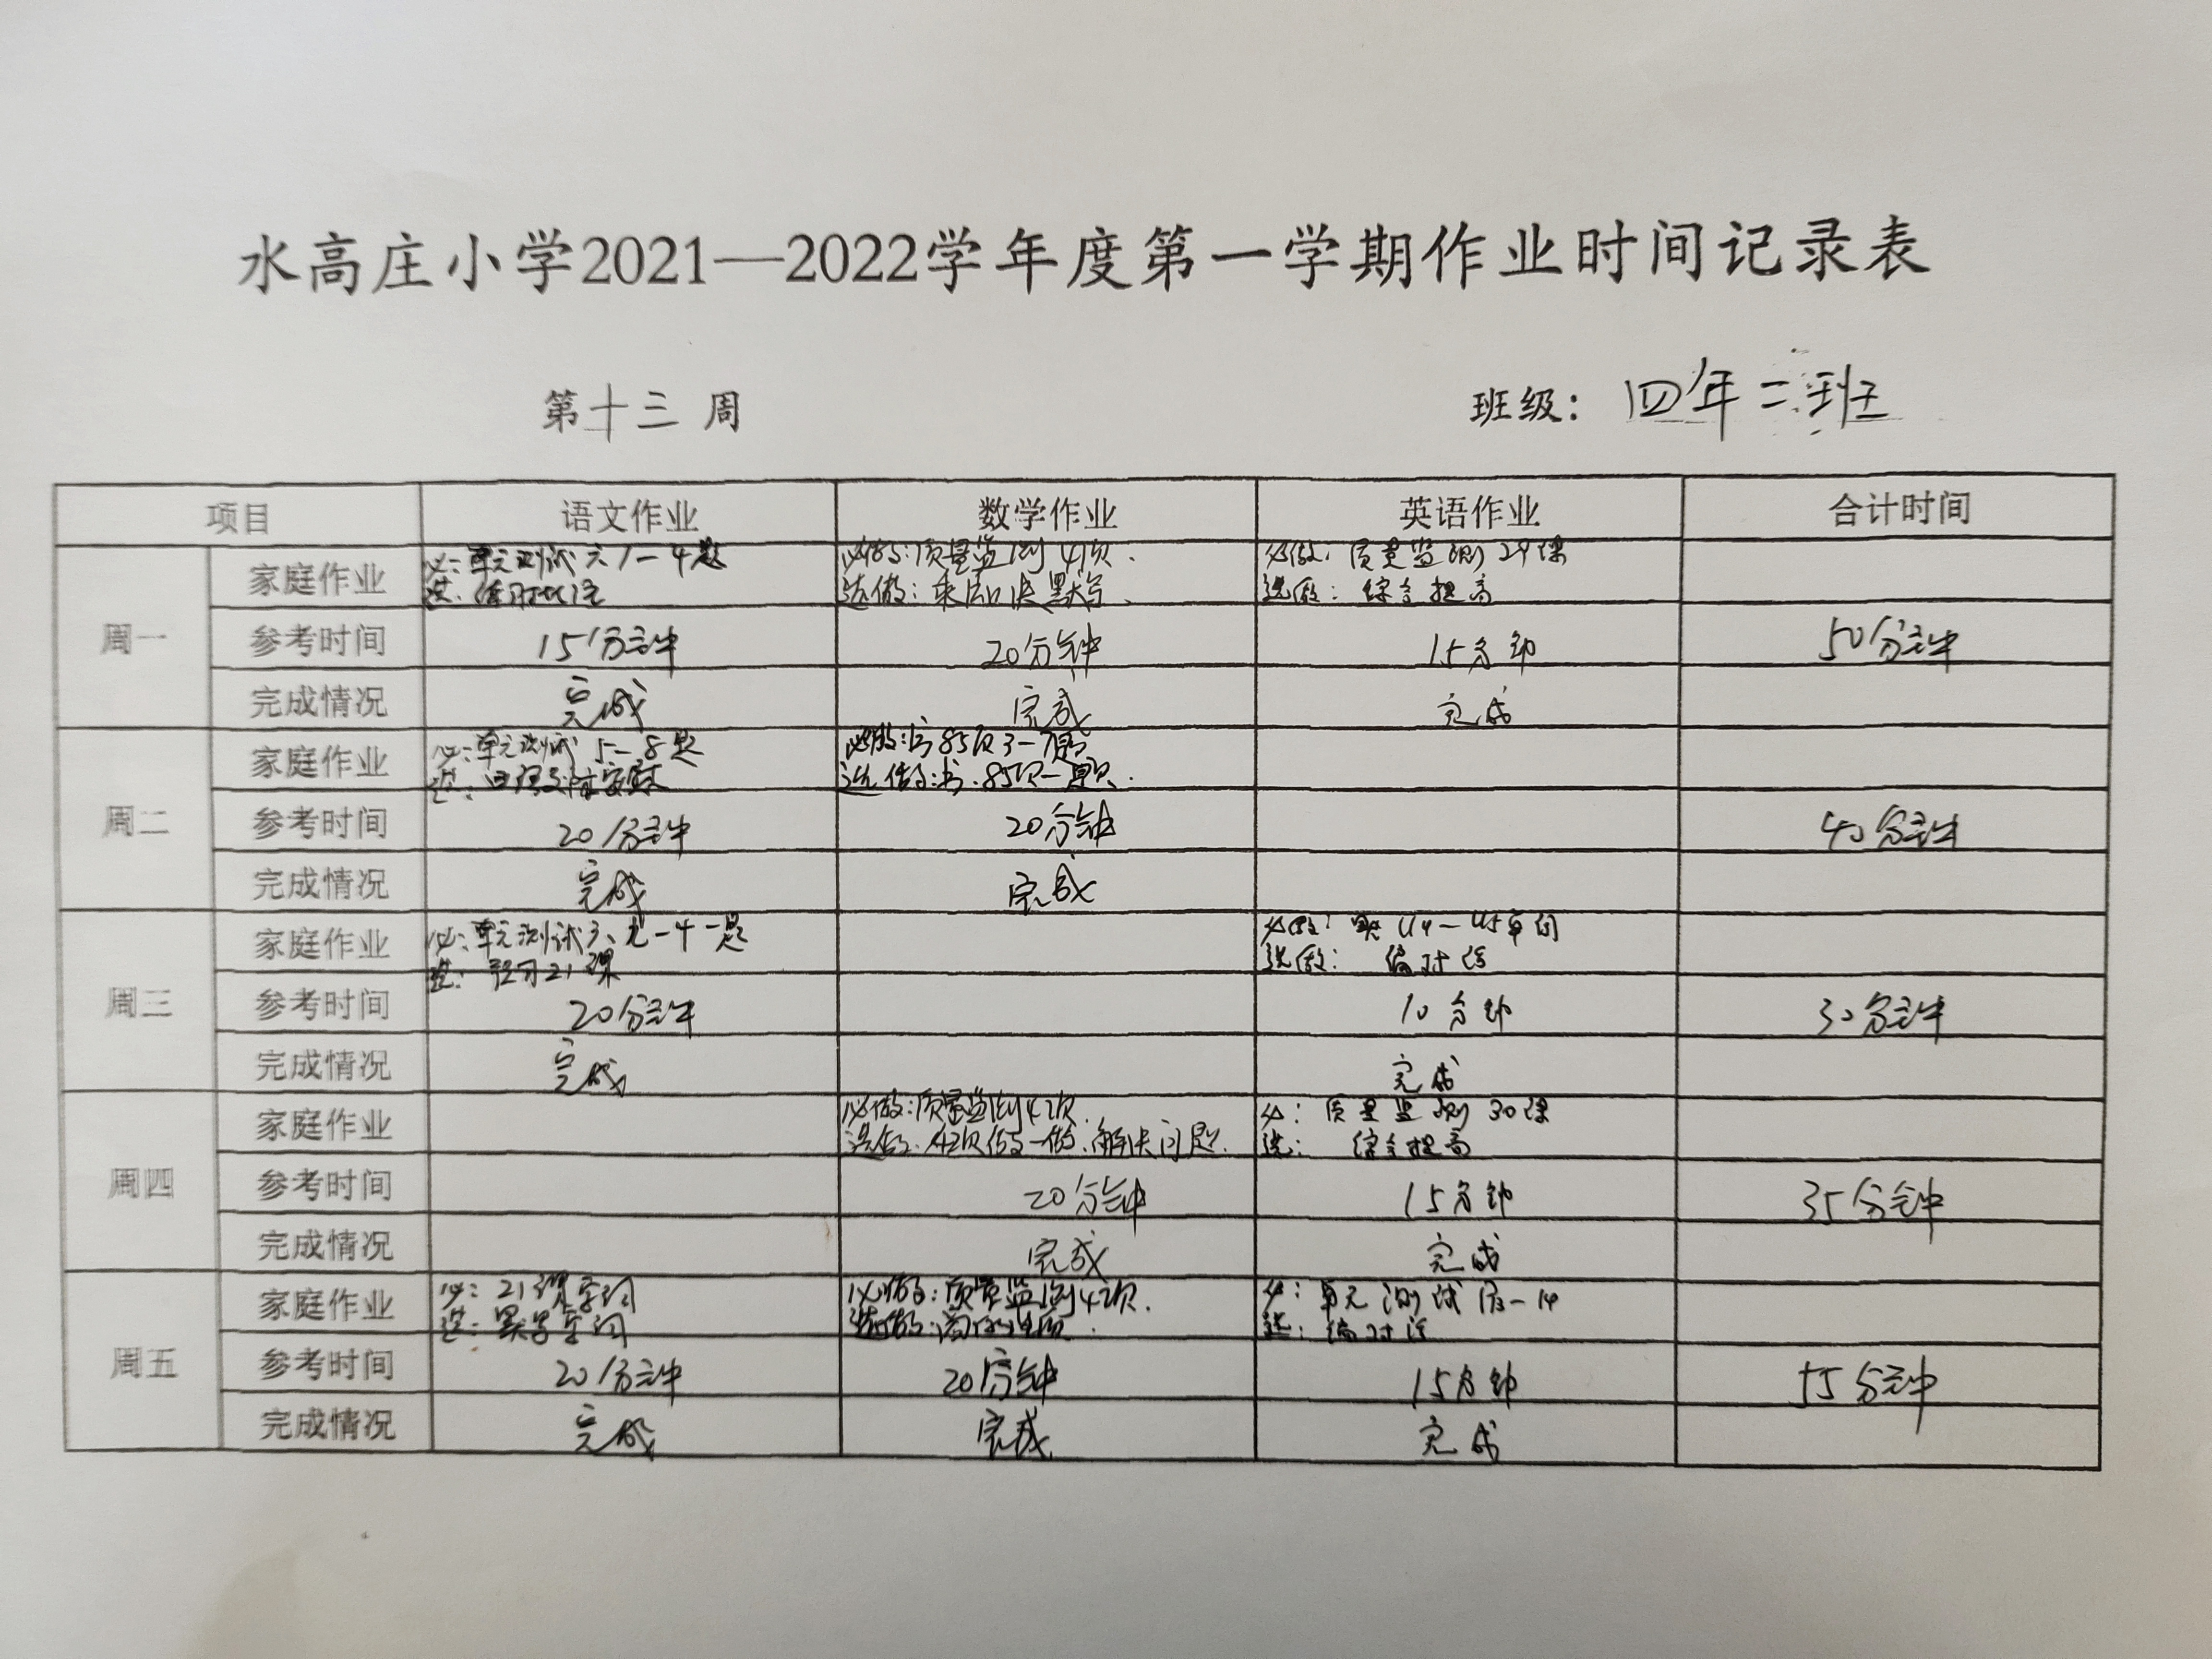 水高庄小学2021—2022学年度第一学期作业时间记录表
第十三周 班级：四年二班
项目 语文作业 数学作业 英语作业 合计时间
周一
家庭作业 必：单元测试六1－4题 必做：质量监测41页. 必做：质量监测29课
选： 选做：默写、 选做：综合提高
参考时间 15分钟 20分钟 15分钟 50分钟
完成情况 完成 完成 完成
周二
家庭作业 必：单元测试5－8题 必做：书85页3－7题
选： 选做：书.85页
参考时间 20分钟 20分钟 40分钟
完成情况 完成 完成
周三
家庭作业 必：单元测试 必做： U4－U5单词
选：预习21课 选做：编对话
参考时间 20分钟 10分钟 30分钟
完成情况 完成 完成
周四
家庭作业 必做：质量监测42页. 必：质量监测30课
选做：42页做一做.解决问题. 选：综合提高
参考时间 20分钟 15分钟 35分钟
完成情况 完成 完成
周五
家庭作业 必：21课字词 必做：质量监测42页. 必：单元测试
选：默写字词 选做：商的 选：编对话
参考时间 20分钟 20分钟 15分钟 55分钟
完成情况 完成 完成 完成